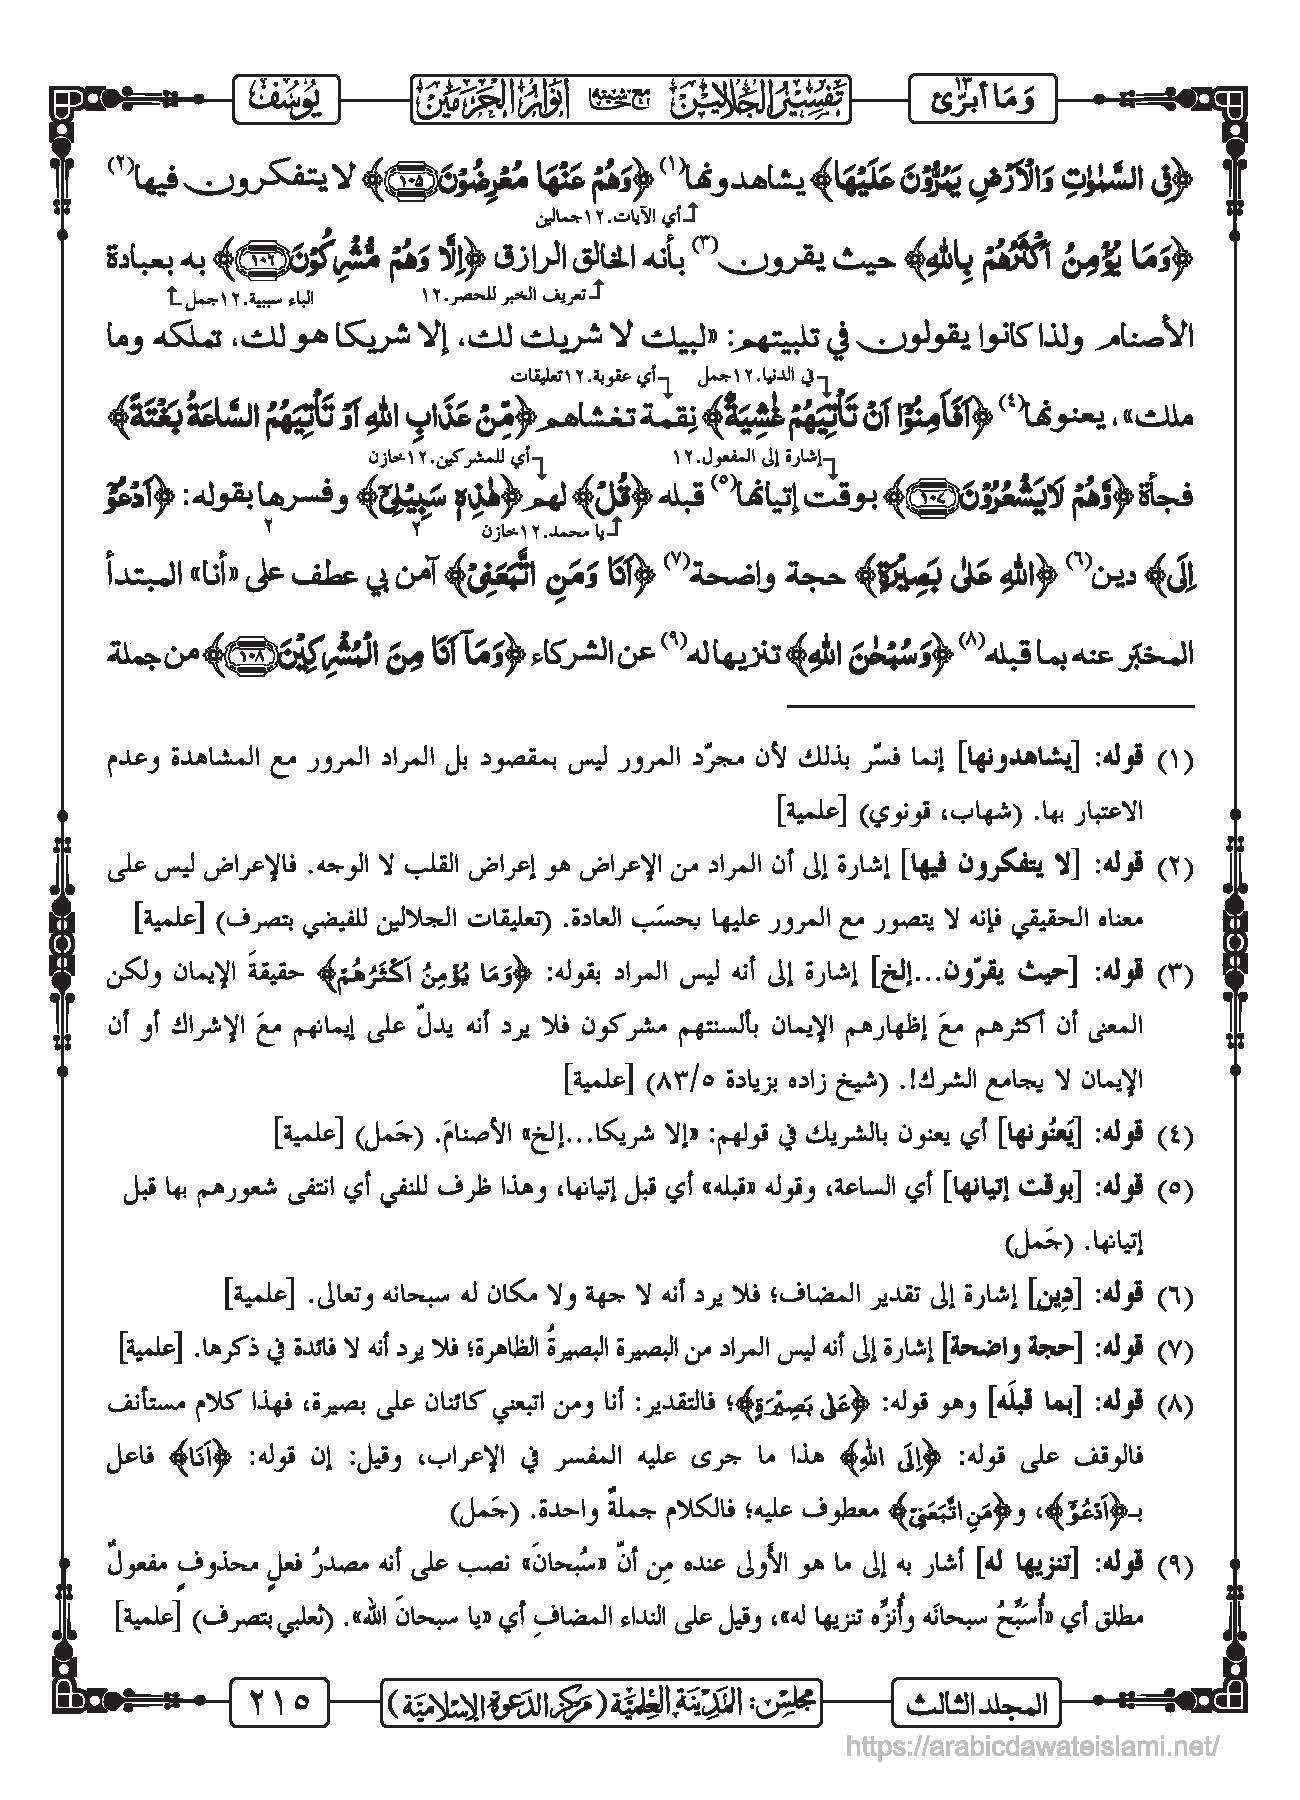 وَمَا أُبَرِّئ ١٣
تفسير الجلالين مع حاشيته أنوار الحرمين
يُوسُف
﴿فِی السَّمٰوٰتِ وَالْاَرْضِ یَمُرُّوْنَ عَلَیْهَا﴾ يشاهدونها(١) ﴿وَهُمْ عَنْهَا مُعْرِضُوْنَ ١٠٥﴾ لا يتفكرون فيها(٢)
أي الآيات.١٢جمالين
﴿وَمَا یُؤْمِنُ اَكْثَرُهُمْ بِاللهِ﴾ حيث يقرون(٣) بأنه الخالق الرازق ﴿اِلَّا وَهُمْ مُّشْرِكُوْنَ ١٠٦﴾ به بعبادة
تعريف الخبر للحصر.١٢ الباء سببية.١٢جمل
الأصنام ولذا كانوا يقولون في تلبيتهم: «لبيك لا شريك لك، إلا شريكا هو لك، تملكه وما
في الدنيا.١٢جمل أي عقوبة.١٢تعليقات
ملك»، يعنونها(٤) ﴿اَفَاَمِنُوْۤا اَنْ تَاْتِیَهُمْ غٰشِیَةٌ﴾ نِقمة تغشاهم ﴿مِّنْ عَذَابِ اللهِ اَوْ تَاْتِیَهُمُ السَّاعَةُ بَغْتَةً﴾
إشارة إلى المفعول.١٢ أي للمشركين.١٢خازن
فجأة ﴿وَّهُمْ لَا یَشْعُرُوْنَ ١٠٧﴾ بوقت إتيانها(٥) قبله ﴿قُلْ﴾ لهم ﴿هٰذِهٖ سَبِیْلِیْۤ﴾ وفسرها بقوله: ﴿اَدْعُوْۤ
يا محمد.١٢خازن ٢ ٢
اِلَی﴾ دين(٦) ﴿اللهِ عَلٰی بَصِیْرَةٍ﴾ حجة واضحة(٧) ﴿اَنَا وَمَنِ اتَّبَعَنِیْ﴾ آمن بي عطف على «أنا» المبتدأ
المخبَر عنه بما قبله(٨) ﴿وَسُبْحٰنَ اللهِ﴾ تنزيها له(٩) عن الشركاء ﴿وَمَاۤ اَنَا مِنَ الْمُشْرِكِیْنَ ١٠٨﴾ من جملة
(١) قوله: [يشاهدونها] إنما فسّر بذلك لأن مجرّد المرور ليس بمقصود بل المراد المرور مع المشاهدة وعدم
الاعتبار بها. (شهاب، قونوي) [علمية]
(٢) قوله: [لا يتفكرون فيها] إشارة إلى أن المراد من الإعراض هو إعراض القلب لا الوجه. فالإعراض ليس على
معناه الحقيقي فإنه لا يتصور مع المرور عليها بحسَب العادة. (تعليقات الجلالين للفيضي بتصرف) [علمية]
(٣) قوله: [حيث يقرّون...إلخ] إشارة إلى أنه ليس المراد بقوله: ﴿وَمَا یُؤْمِنُ اَكْثَرُهُمْ﴾ حقيقةَ الإيمان ولكن
المعنى أن أكثرهم معَ إظهارهم الإيمان بألسنتهم مشركون فلا يرد أنه يدلّ على إيمانهم معَ الإشراك أو أن
الإيمان لا يجامع الشرك!. (شيخ زاده بزيادة ٨٣/٥) [علمية]
(٤) قوله: [يَعنُونها] أي يعنون بالشريك في قولهم: «إلا شريكا...إلخ» الأصنامَ. (جَمل) [علمية]
(٥) قوله: [بوقت إتيانها] أي الساعة، وقوله «قبله» أي قبل إتيانها، وهذا ظرف للنفي أي انتفى شعورهم بها قبل
إتيانها. (جَمل)
(٦) قوله: [دِين] إشارة إلى تقدير المضاف؛ فلا يرد أنه لا جهة ولا مكان له سبحانه وتعالى. [علمية]
(٧) قوله: [حجة واضحة] إشارة إلى أنه ليس المراد من البصيرة البصيرةُ الظاهرة؛ فلا يرد أنه لا فائدة في ذكرها. [علمية]
(٨) قوله: [بما قبلَه] وهو قوله: ﴿عَلٰی بَصِیْرَةٍ﴾؛ فالتقدير: أنا ومن اتبعني كائنان على بصيرة، فهذا كلام مستأنف
فالوقف على قوله: ﴿اِلَی اللهِ﴾ هذا ما جرى عليه المفسر في الإعراب، وقيل: إن قوله: ﴿اَنَا﴾ فاعل
بـ﴿اَدْعُوْۤ﴾، و﴿مَنِ اتَّبَعَنِیْ﴾ معطوف عليه؛ فالكلام جملةٌ واحدة. (جَمل)
(٩) قوله: [تنزيها له] أشار به إلى ما هو الأَولى عنده مِن أنّ «سُبحانَ» نصب على أنه مصدرُ فعلٍ محذوفٍ مفعولٌ
مطلق أي «أُسَبِّحُ سبحانَه وأُنزِّه تنزيها له»، وقيل على النداء المضافِ أي «يا سبحانَ الله». (ثعلبي بتصرف) [علمية]
المجلد الثالث
مجلس: المدينة العلمية (مركز الدعوة الإسلامية)
٢١٥
https://arabicdawateislami.net/